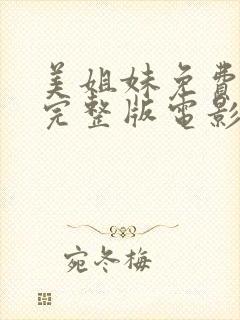 美姐妹免費
完整版電影
宛冬梅